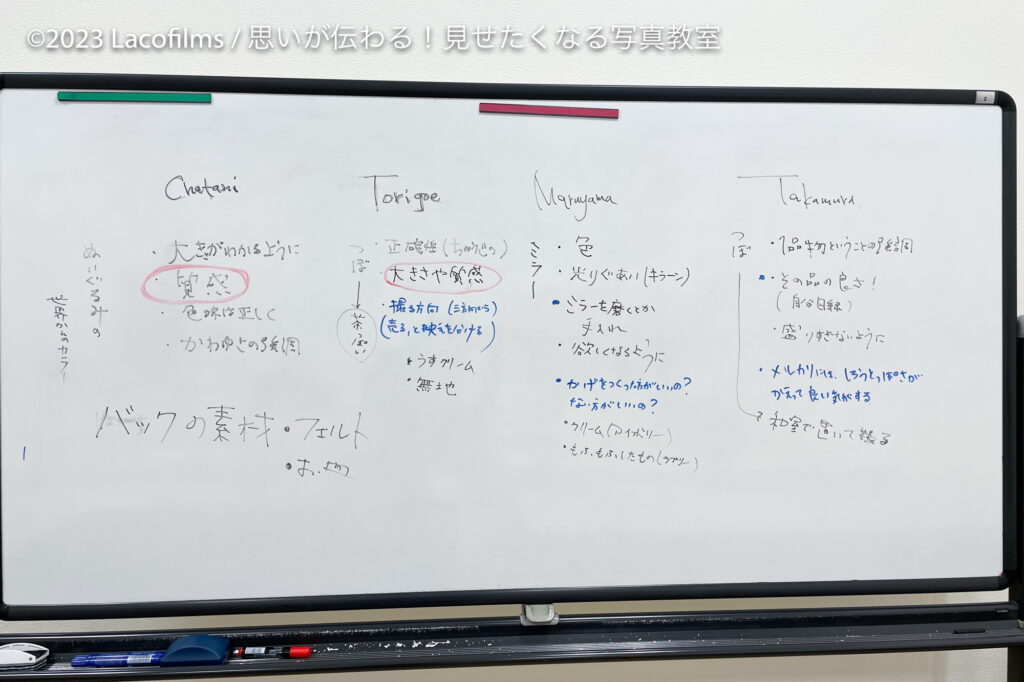 ©2023 Lacofilms / 思いが伝わる！見せたくなる写真教室
2
Chatani
ぬいぐるみの
世界からのカラー
・大きさがわかるように
・質感
・色味は正しく
・かわゆさの強調
バックの素材・フェルト
Torigoe
つぼ
茶っぽい
・正確性
・大きさや質感
・撮る方向（三方向から）
（売ると映えを分ける）
・うすクリーム
・無地
Maruyama
ミラー
・色
・光りぐあい（キラーン）
・ミラーを磨くとか
手入れ
・欲しくなるように
・かげをつくった方がいいの？
ない方がいいの？
・クリーム（アイボリー）
・もふもふしたもの（ラブリー）
Takamura
つぼ
・1品物ということの強調
・その品の良さ！
（自分目線）
・盛りすぎないように
・メルカリには、しろうとっぽさが
かえって良い気がする
和室で置いて撮る